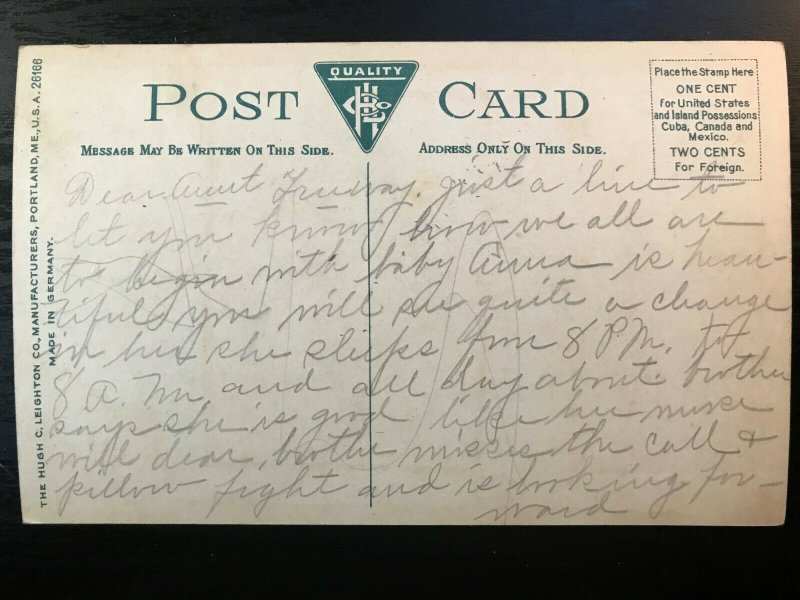 THE HUGH C. LEIGHTON CO., MANUFACTURERS, PORTLAND, ME., U.S.A. 26166
MADE IN GERMANY.
POST CARD
QUALITY
MESSAGE MAY BE WRITTEN ON THIS SIDE.
ADDRESS ONLY ON THIS SIDE.
Place the Stamp Here
ONE CENT
for United States
and Island Possessions
Cuba, Canada and
Mexico.
TWO CENTS
For Foreign.
Dear Aunt just a line to
let you know how we all are
to begin with baby Anna is beau-
tiful you will see quite a change
in her she sleeps from 8 P.M. to
8 A.M and all day about. brother
says she is good like her nurse
well dear, brother misses the call &
pillow fight and is looking for-
ward